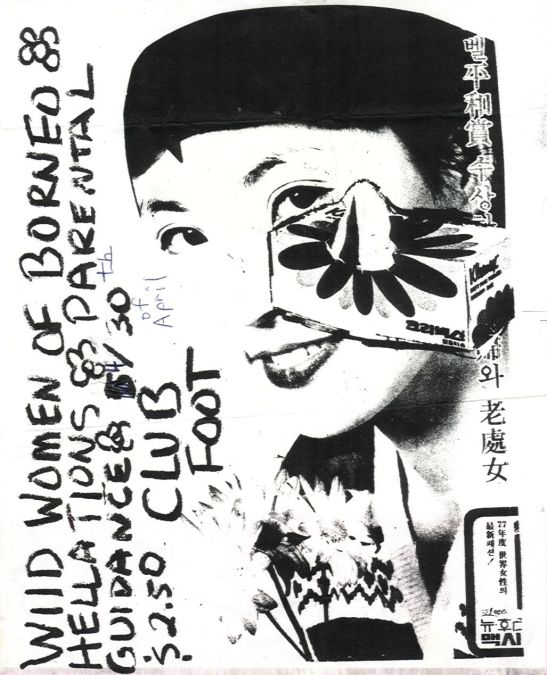 WIID WOMEN OF BORNEO
HELLATIONS PARENTAL
GUIDANCE /30 th of April
$2.50 CLUB
FOOT
벨平和賞 수상
와 老處女
크리넥스
77年度 世界女性의
最新패션!
맥시